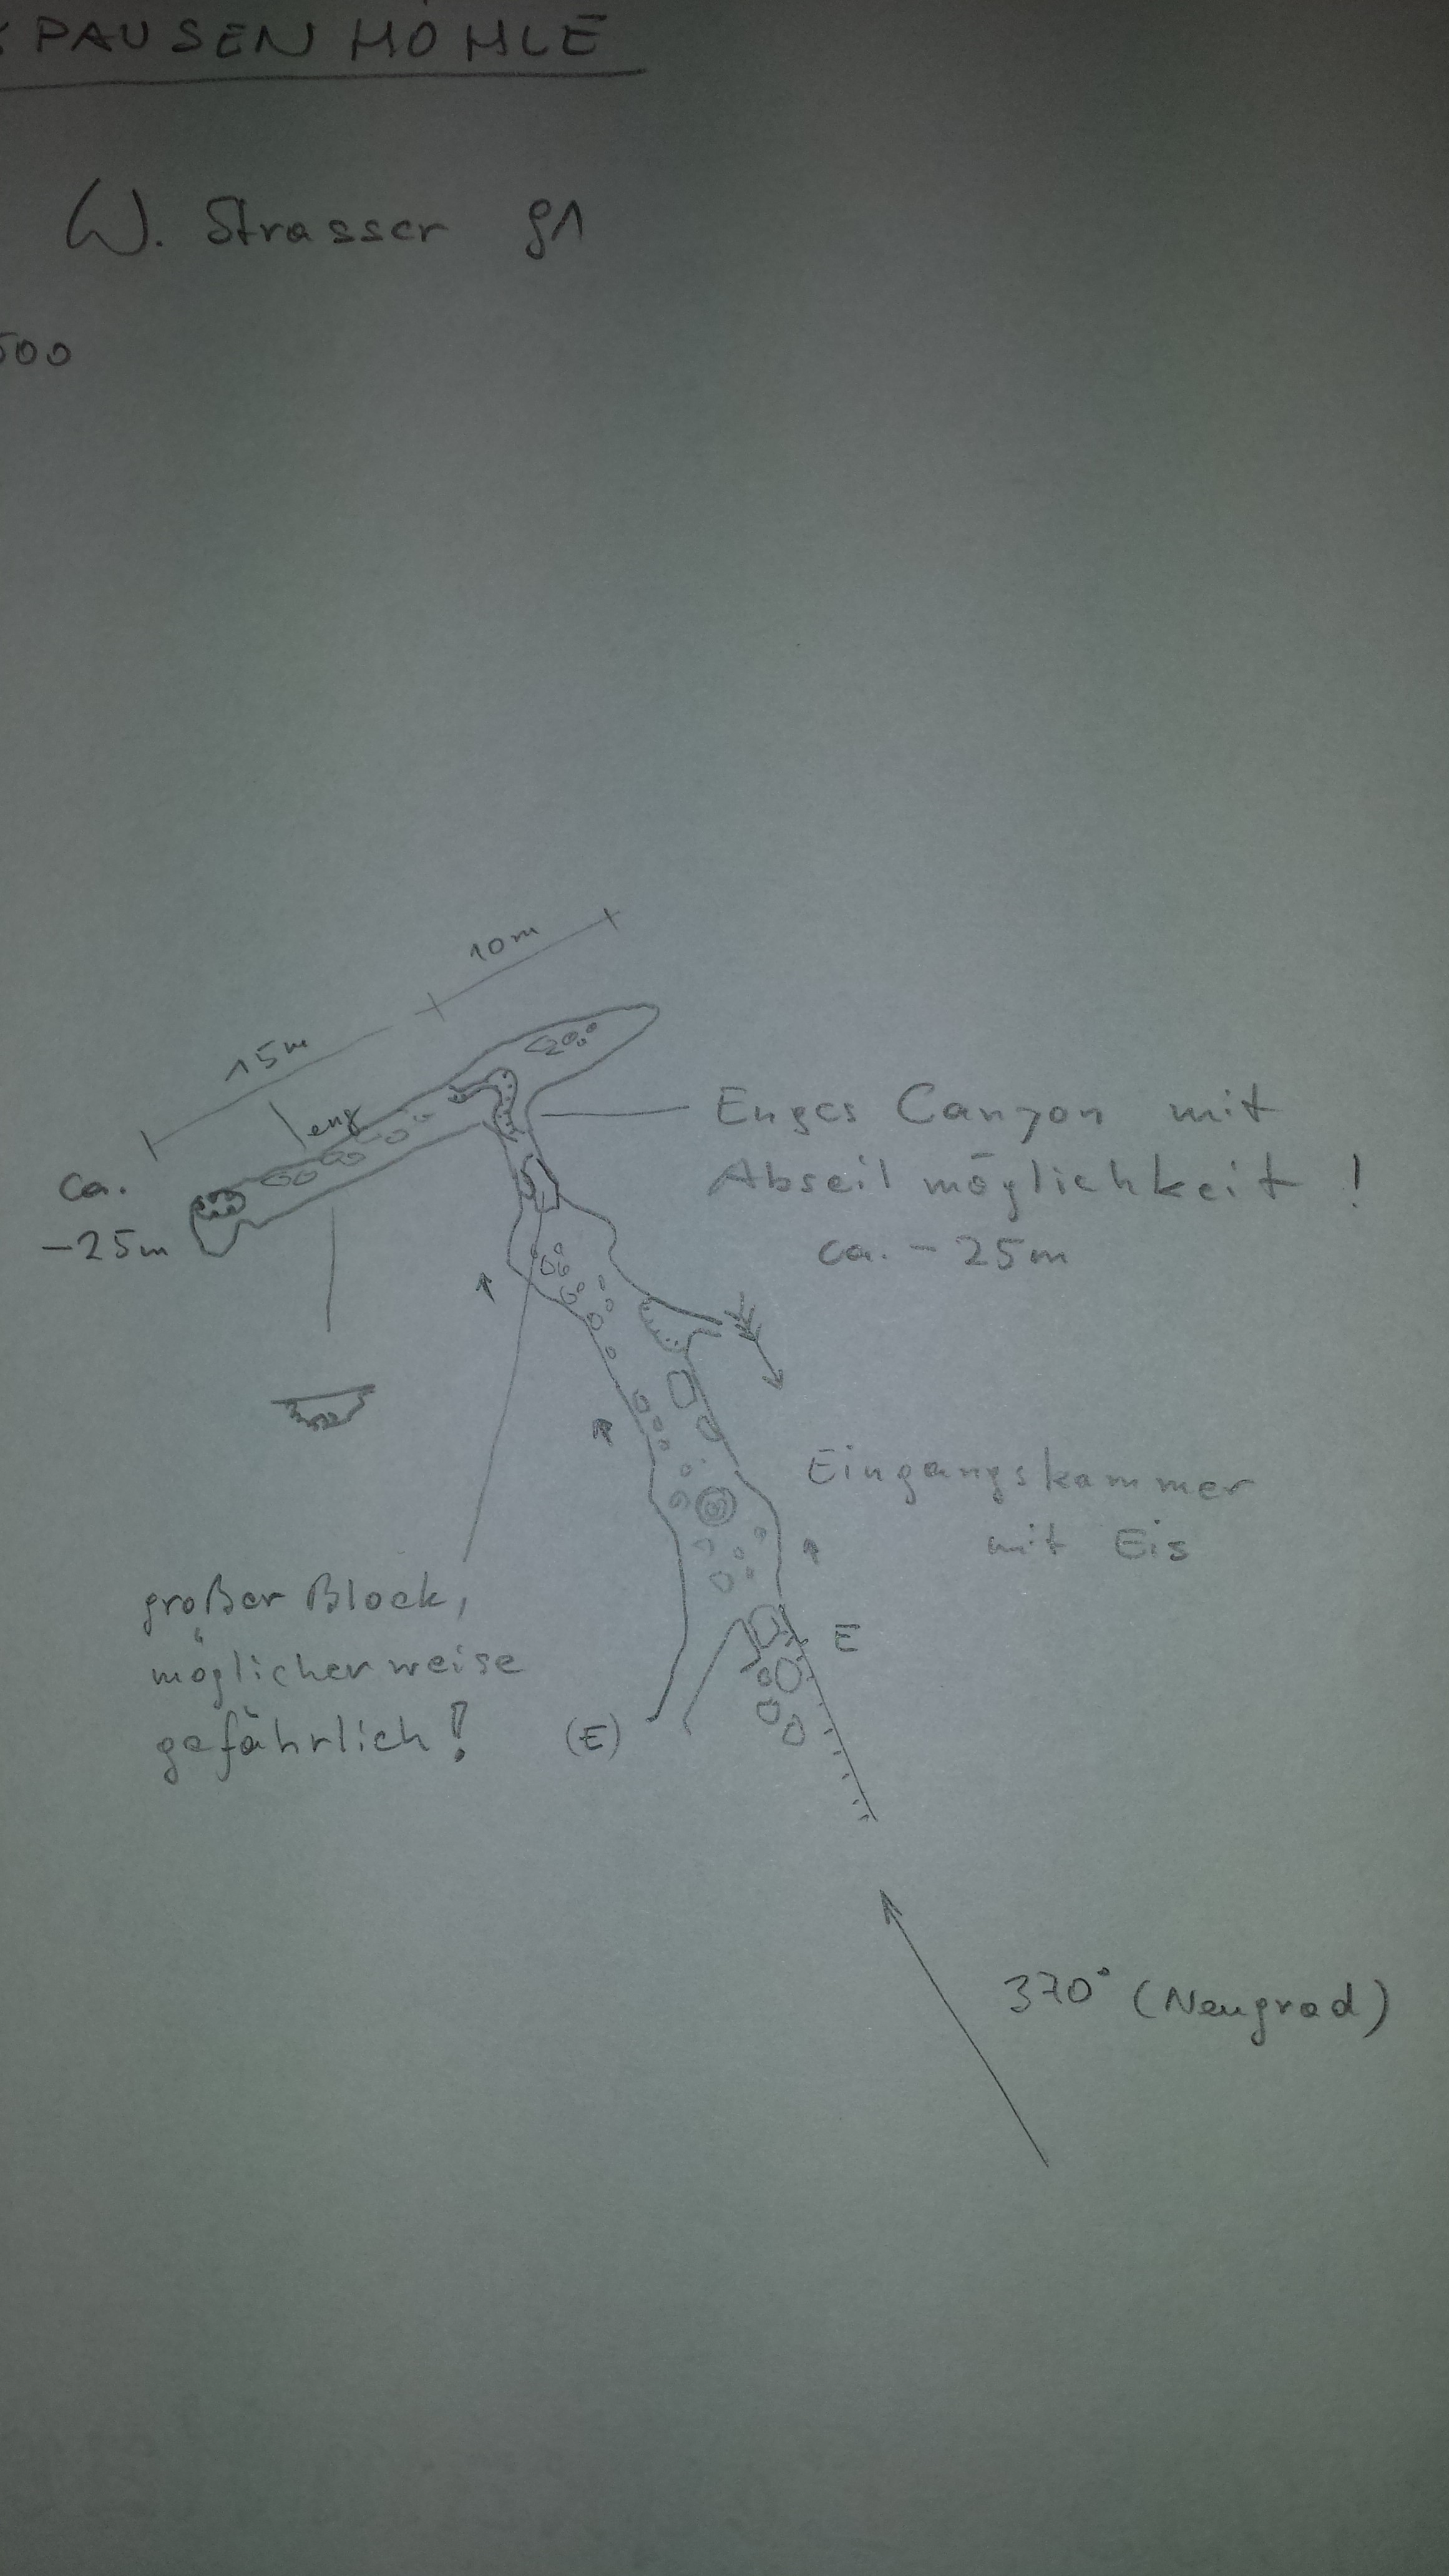 PAUSENHÖHLE
W. Strasser 91
500
10m
15m
eng
ca.
-25m
Enges Canyon mit
Abseilmöglichkeit!
ca. -25m
Eingangskammer
mit Eis
großer Block,
möglicherweise
gefährlich!
E
(E)
370° (Neugrad)